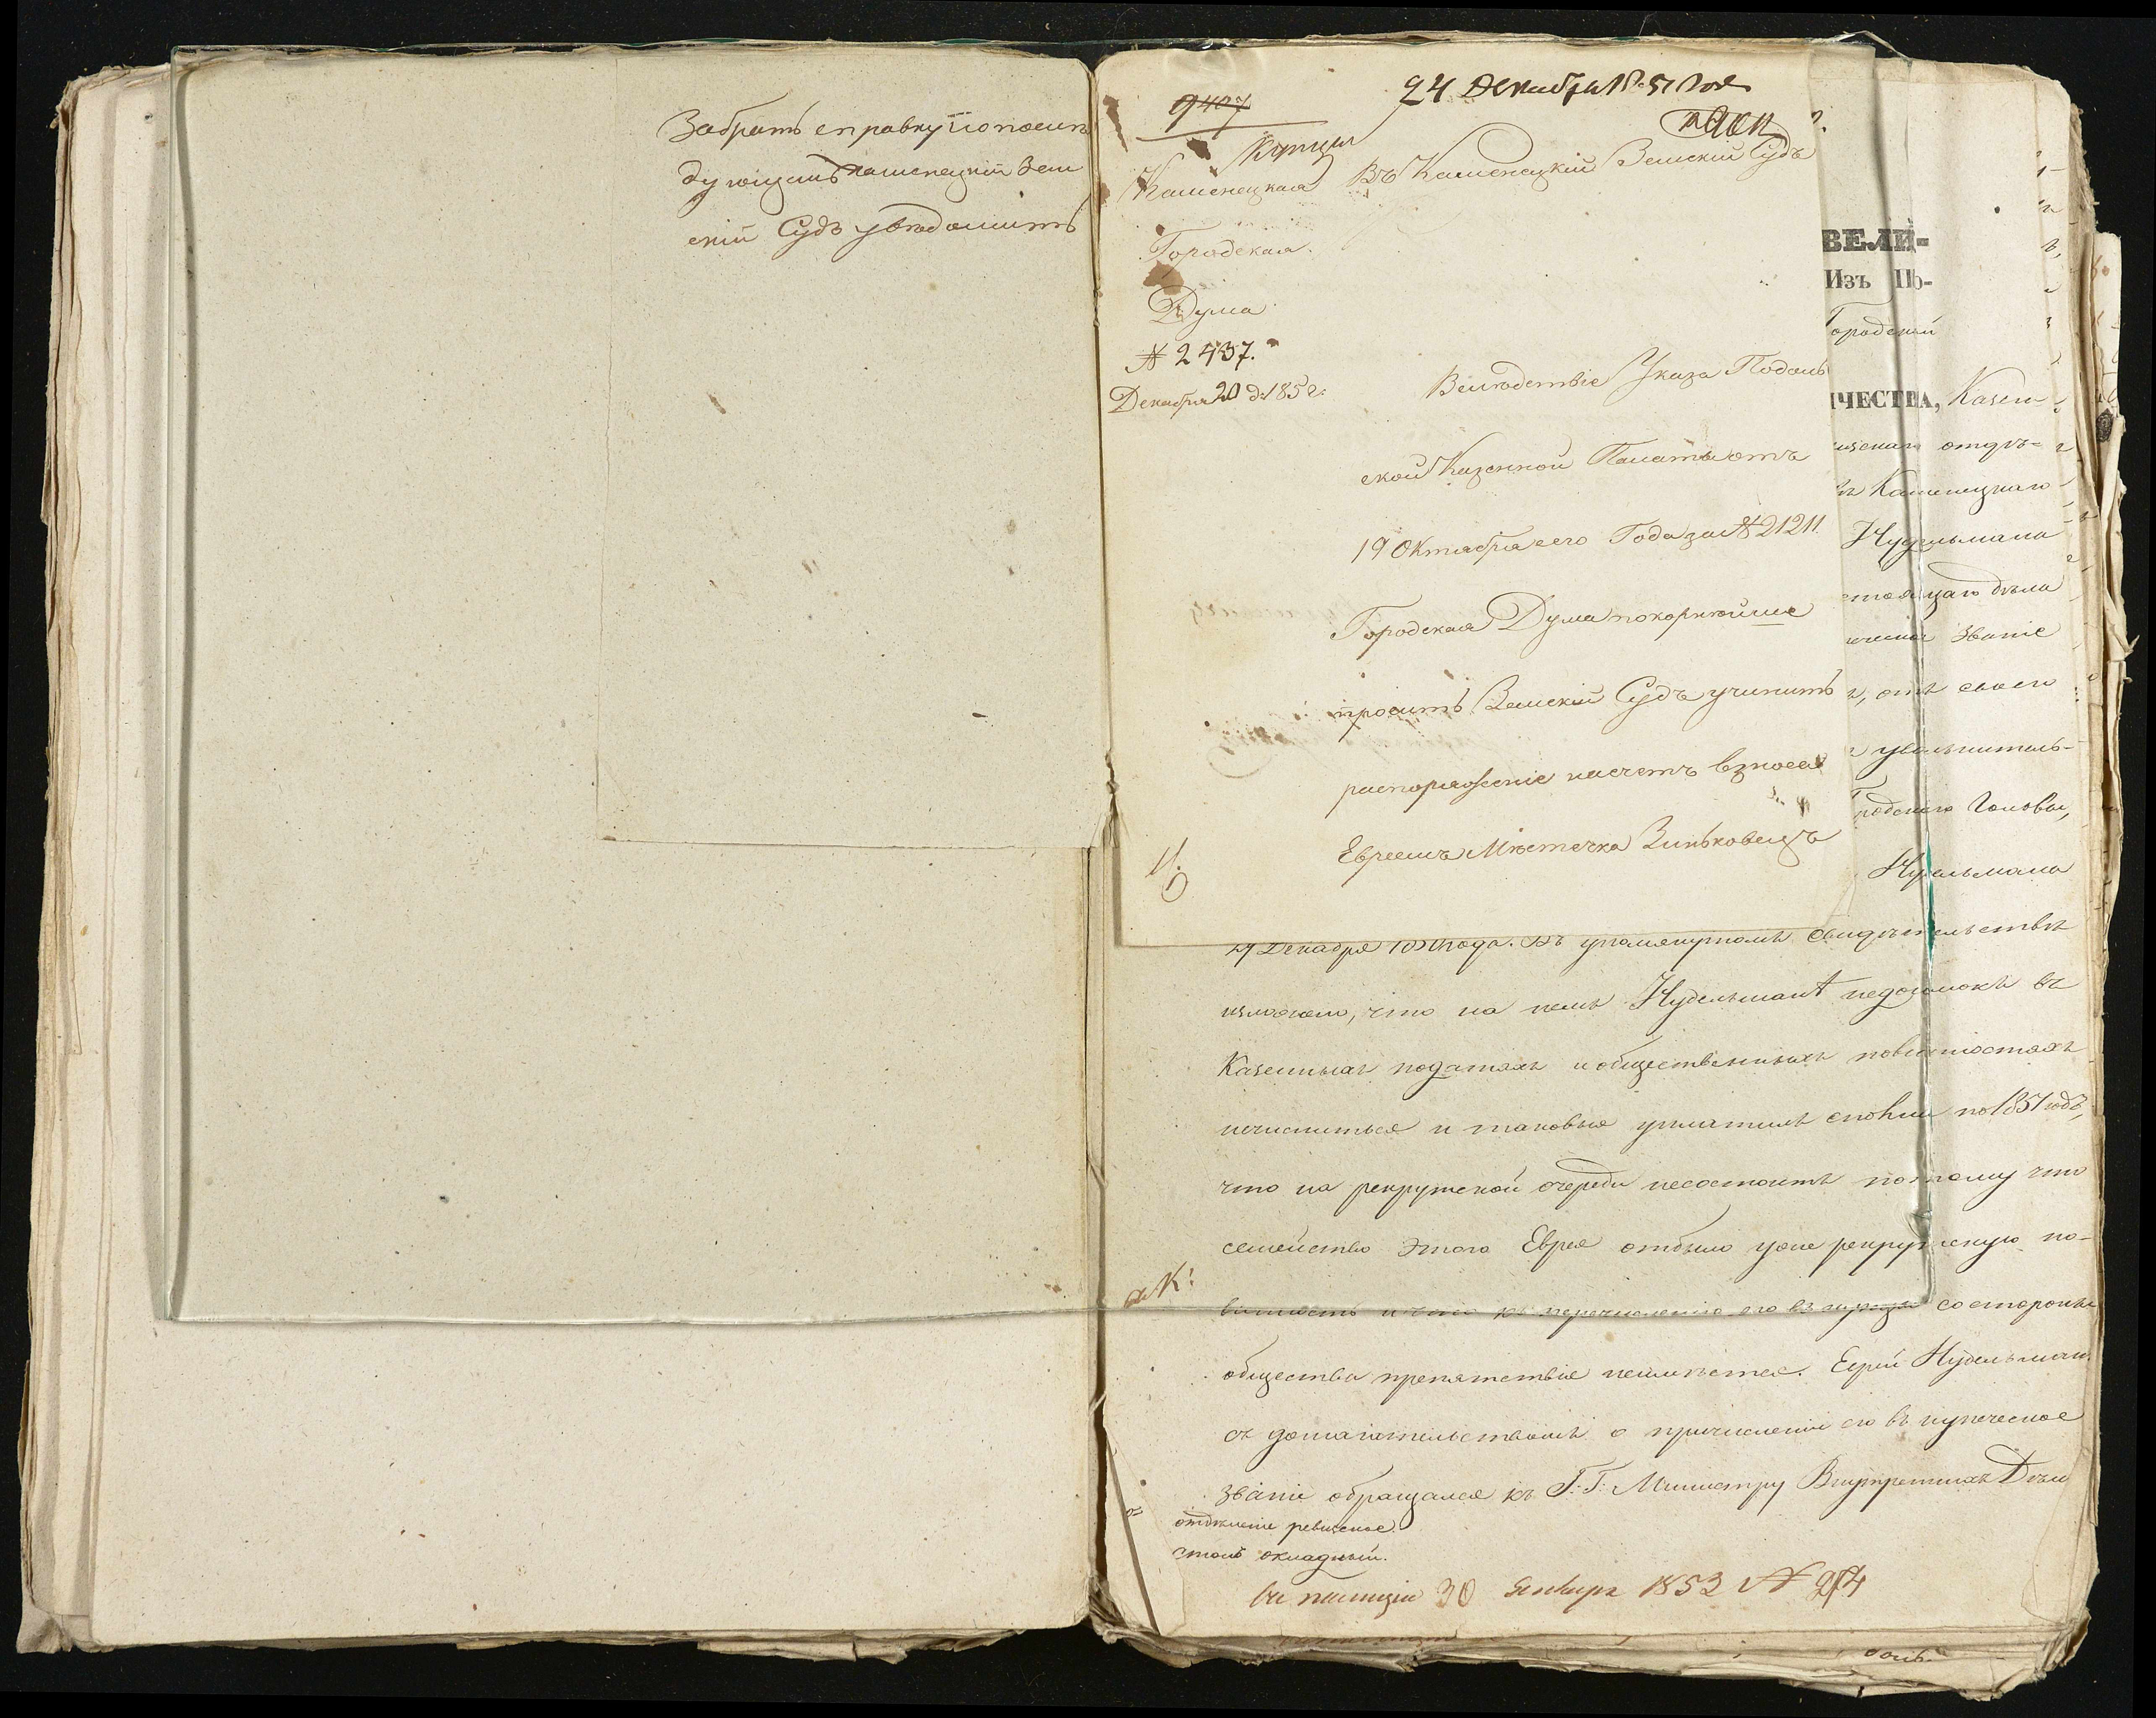 Забрать справку и о послѣ
дующемъ Каменецкій Зем
скій Судъ увѣдомить
9407
24 Декабря 1851 года
Купцы
Каменецкая
Городская
Дума
№ 2437.
Декабря 20 д. 185 г.
Въ Каменецкій Земскій Судъ
Вслѣдствіе Указа Подоль
ской Казенной Палаты отъ
19 Октября сего Года за № 21211.
Городская Дума покорнѣйше
проситъ Земскій Судъ учинить
распоряженіе насчетъ взноса
Евреемъ Мѣстечка Зиньковецъ
ВЕЛИ-
Изъ По-
Городской
ИЧЕСТВА, Казен-
отдѣ-
Каменецкаго
Нудельмана
стоящаго дѣла
званіе
, отъ своего
увольнитель-
родскаго Головы,
Нудельмана
Декабря года. Въ упомянутомъ свидѣтельствѣ
изложено, что на немъ Нудельманѣ недоимокъ въ
Казенныхъ податяхъ и общественныхъ повинностяхъ
нечислиться и таковыя уплатилъ сполна по 1851 годъ,
что на рекрутской очереди несостоитъ потому что
семейство этого Еврея отбыло уже рекрутскую по-
винность и что къ перечисленію его въ купцы со стороны
общества препятствія неимѣется. Еврей Нудельман
съ домагательствомъ о причисленіи его въ купеческое
званіе обращался къ Г. Г. Министру Внутреннихъ Дѣлъ
отдѣленіе ревизское.
столъ окладный.
30 Января 1852 №